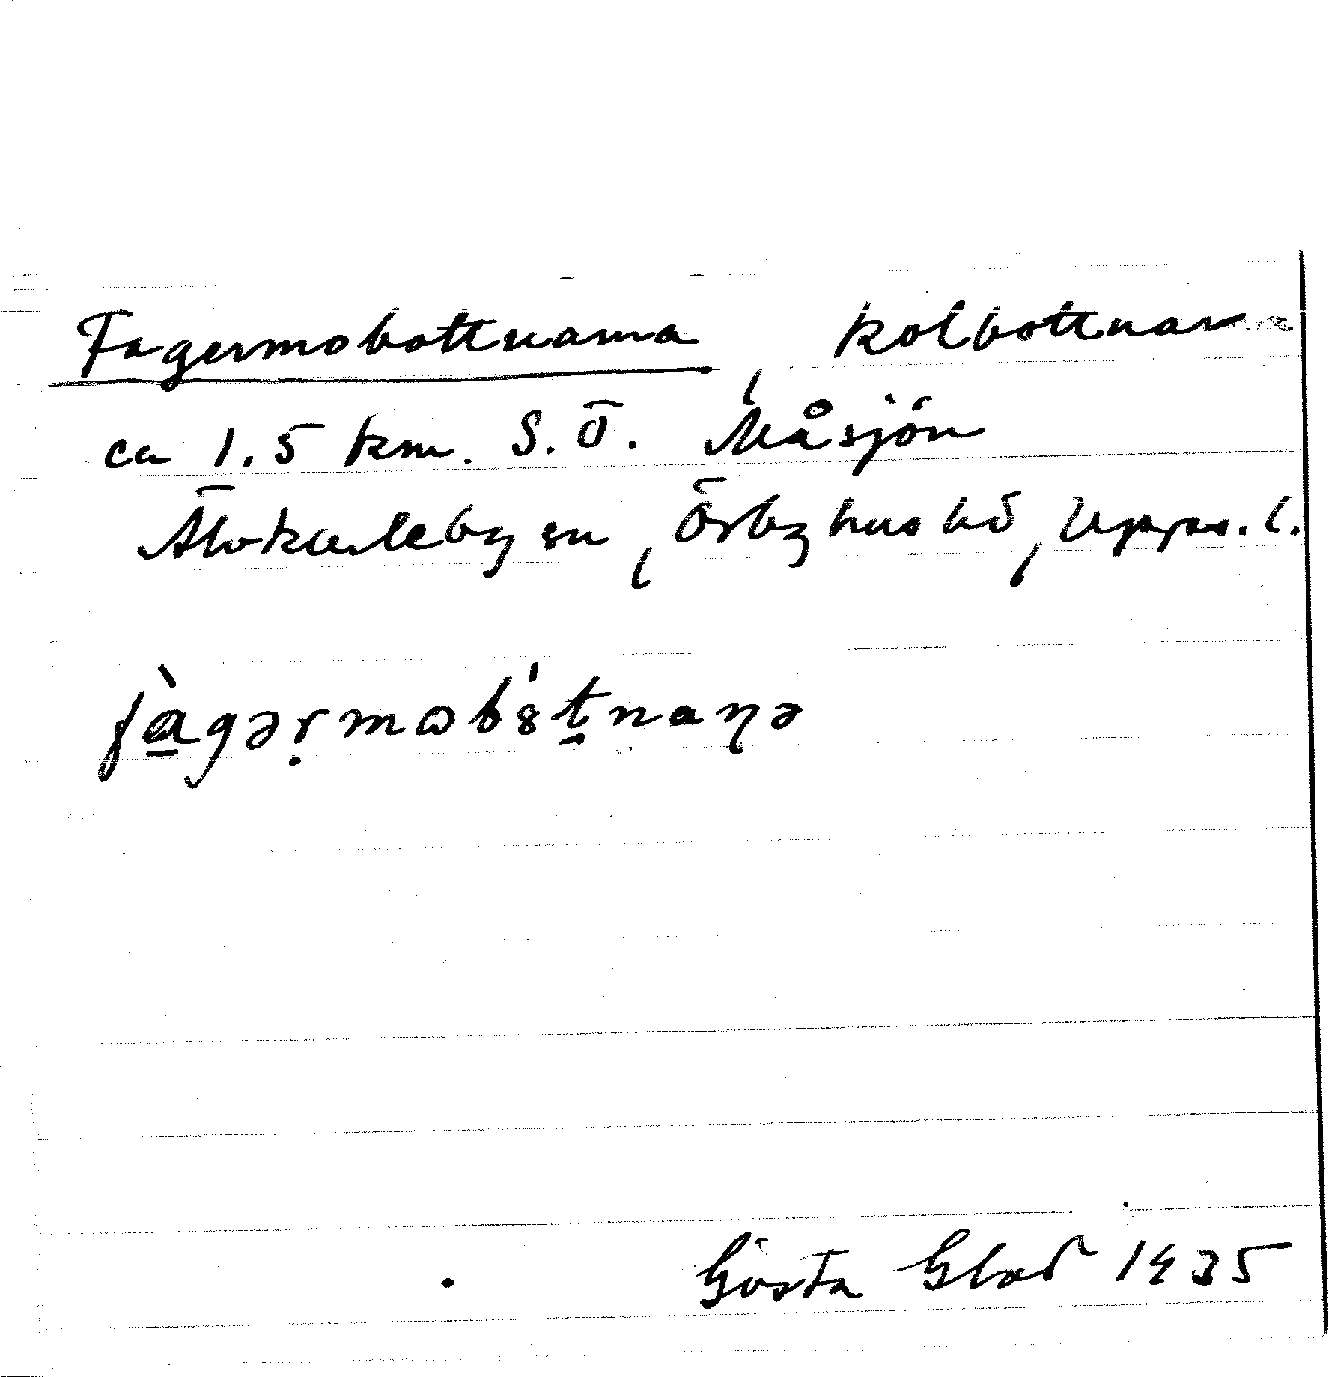 Fagermobottnarna, kolbottnar
ca 1.5 km. S.Ö. Måsjön
Älvkarleby sn, Örbyhus hd, Upps. l.
fàgərmωbótnaηə
Gösta Glad 1935